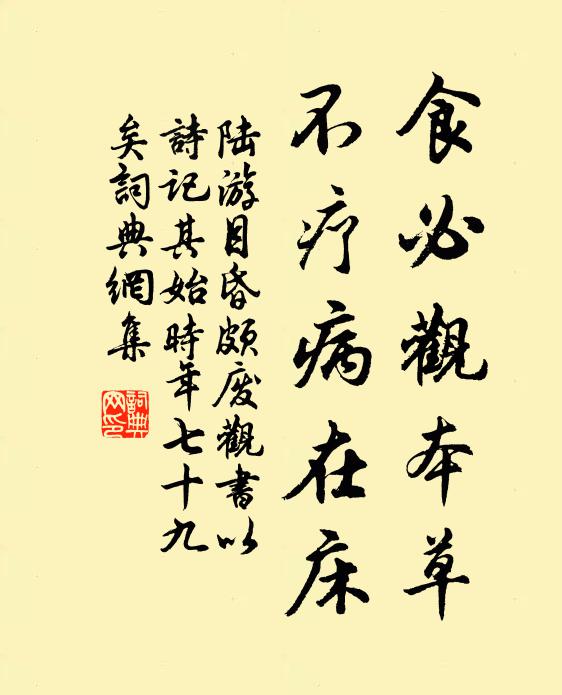 食必觀本草
不疗病在床
陆游目昏頗废觀書以
詩记其始時年七十九
矣詞典網集
詞典网印